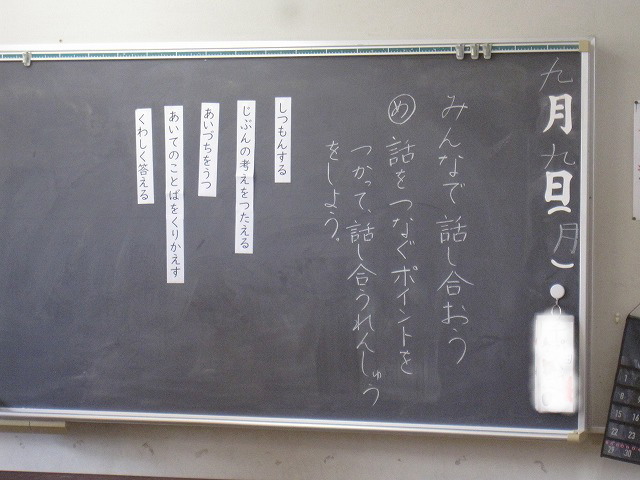 九月九日(月)
みんなで話し合おう
め 話をつなぐポイントを
つかって、話し合うれんしゅう
をしよう。
しつもんする
じぶんの考えをつたえる
あいづちをうつ
あいてのことばをくりかえす
くわしく答える